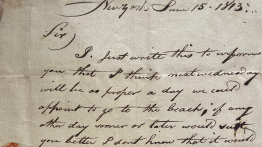 Newyork June 15. 1813.
Sir)
I Just write this to inform
you that I think next wednesday
will be as proper a day we could
appoint to go to the beach, if any
other day sooner or later would suit
you better I dont know that it would